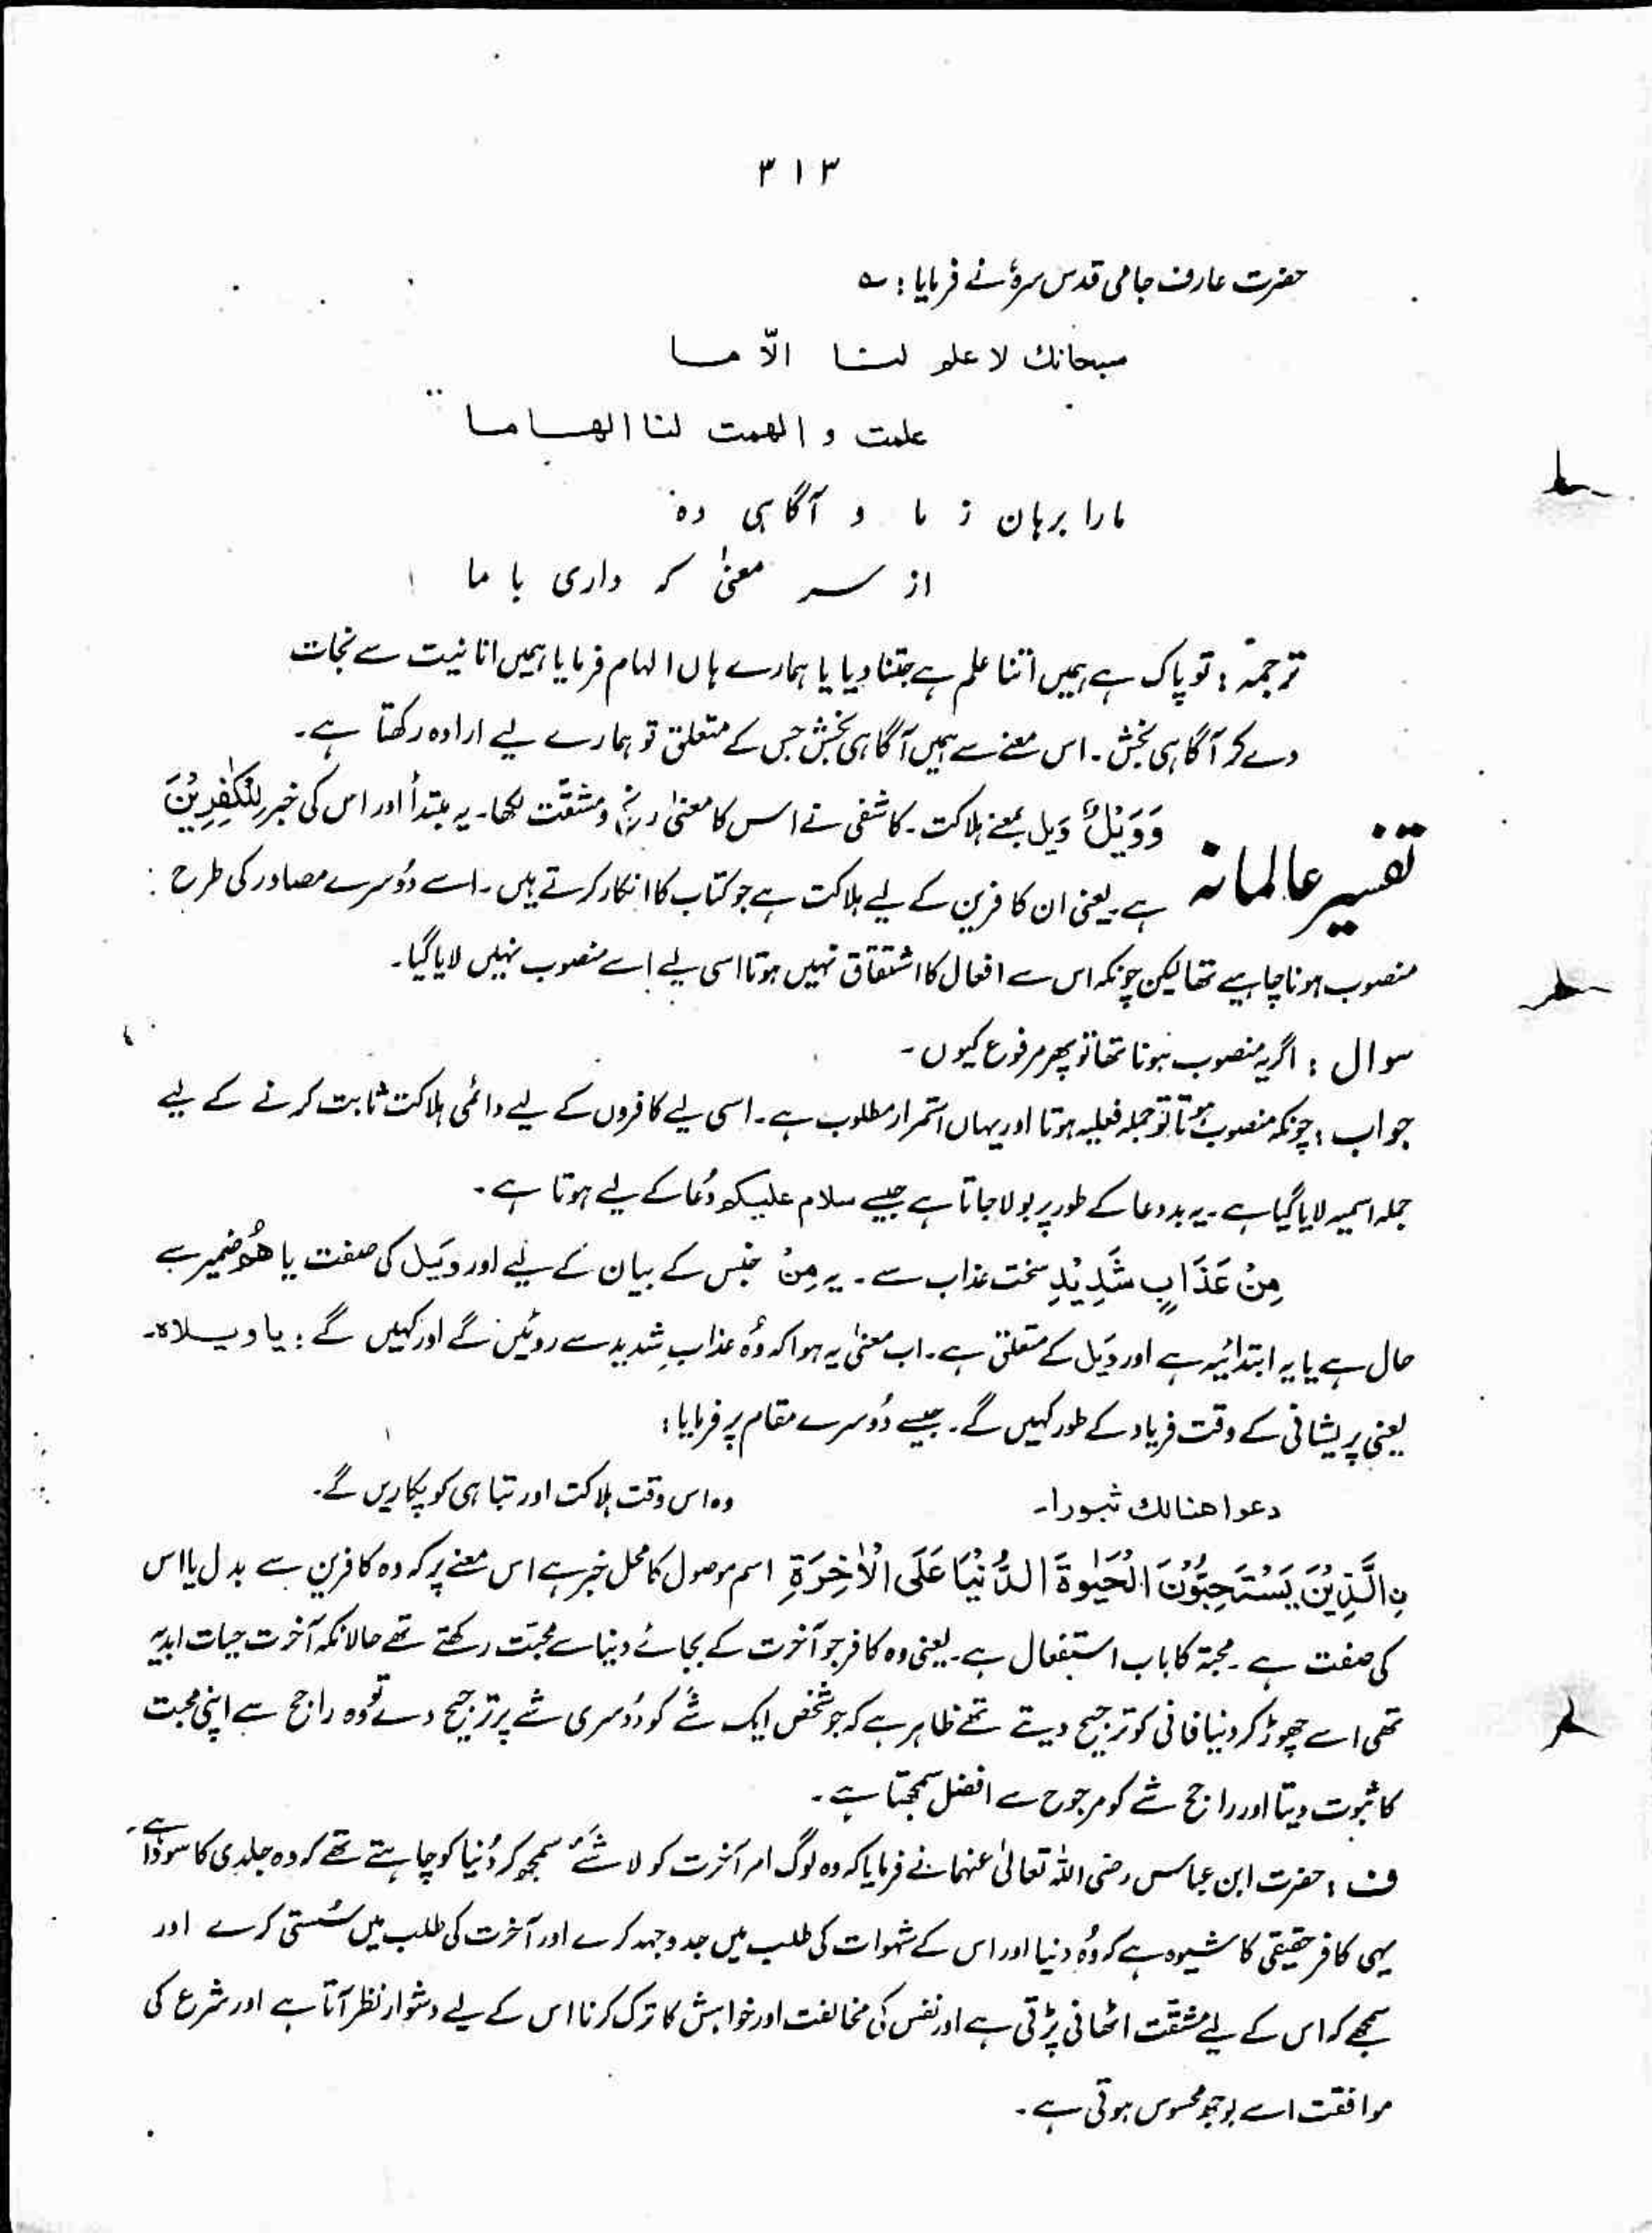 ۳۱۳
حضرت عارف جامی قدس سرہٗ نے فرمایا : ؎
سبحانك لا علم لنا الّا ما
علمت و الهمت لنا الهاما
مارا برہان ز ما و آگاہی دہ
از سر معنیٰ کہ داری با ما
ترجمہ : تو پاک ہے ہمیں اتنا علم ہے جتنا دیا یا ہمارے ہاں الہام فرمایا ہمیں انانیت سے نجات
دے کر آگاہی بخش ۔ اس معنے سے ہمیں آگاہی بخش جس کے متعلق تو ہمارے لیے ارادہ رکھتا ہے۔
تفسیر عالمانہ وَوَيْلٌ وَیل بمعنے ہلاکت ۔ کاشفی نے اس کا معنیٰ رنج و مشقّت لکھا۔ یہ مبتدأ اور اس کی خبر لِّلْكٰفِرِيْنَ
ہے ۔ یعنی ان کافرین کے لیے ہلاکت ہے جو کتاب کا انکار کرتے ہیں ۔ اسے دُوسرے مصادر کی طرح
منصوب ہونا چاہیے تھا لیکن چونکہ اس سے افعال کا اشتقاق نہیں ہوتا اسی لیے اسے منصوب نہیں لایا گیا۔
سوال : اگر یہ منصوب ہونا تھا تو پھر مرفوع کیوں ۔
جواب : چونکہ منصوب ہوتا تو جملہ فعلیہ ہوتا اور یہاں استمرار مطلوب ہے ۔ اسی لیے کافروں کے لیے دائمی ہلاکت ثابت کرنے کے لیے
جملہ اسمیہ لایا گیا ہے ۔ یہ بددعا کے طور پر بولا جاتا ہے جیسے سلام علیکم دُعا کے لیے ہوتا ہے ۔
مِنْ عَذَابٍ شَدِيْدِ سخت عذاب سے ۔ یہ مِنْ جنس کے بیان کے لیے اور وَیل کی صفت یا هُوَ ضمیر سے
حال ہے یا یہ ابتدائیہ ہے اور وَیل کے متعلق ہے ۔ اب معنیٰ یہ ہوا کہ وُہ عذابِ شدید سے روئیں گے اور کہیں گے : یا ویلاہ۔
یعنی پریشانی کے وقت فریاد کے طور کہیں گے ۔ جیسے دُوسرے مقام پر فرمایا :
دعوا هنالك ثبورا۔ وہ اس وقت ہلاکت اور تباہی کو پکاریں گے ۔
نِ الَّذِيْنَ يَسْتَحِبُّوْنَ الْحَيٰوةَ الدُّنْيَا عَلَى الْاٰخِرَةِ اسم موصول کا محل خبر ہے اس معنے پر کہ وہ کافرین سے بدل یا اس
کی صفت ہے ۔ محبۃ کا باب استفعال ہے ۔ یعنی وہ کافر جو آخرت کے بجائے دنیا سے محبّت رکھتے تھے حالانکہ آخرت حیات ابدیہ
تھی اسے چھوڑ کر دنیا فانی کو ترجیح دیتے تھے ظاہر ہے کہ جو شخص ایک شے کو دُوسری شے پر ترجیح دے تو وہ راجح سے اپنی محبت
کا ثبوت دیتا اور راجح شے کو مرجوح سے افضل سمجھتا ہے ۔
ف : حضرت ابن عباس رضی اللہ تعالیٰ عنہما نے فرمایا کہ وہ لوگ امر آخرت کو لاشَئْ سمجھ کر دُنیا کو چاہتے تھے کہ وہ جلدی کا سودا ہے ۔
یہی کافر حقیقی کا شیوہ ہے کہ وُہ دنیا اور اس کے شہوات کی طلب میں جدوجہد کرے اور آخرت کی طلب میں سُستی کرے اور
سمجھے کہ اس کے لیے مشقت اٹھانی پڑتی ہے اور نفس کی مخالفت اور خواہش کا ترک کرنا اس کے لیے دشوار نظر آتا ہے اور شرع کی
موافقت اسے بوجھ محسوس ہوتی ہے ۔